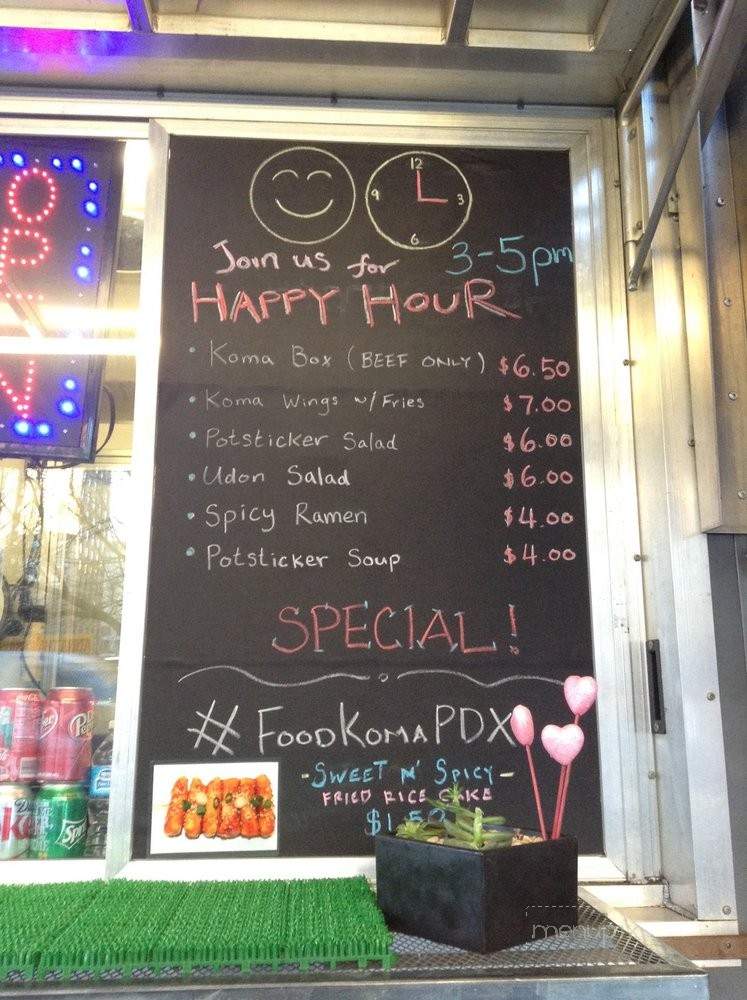 OPEN
12
9 3
6
Join us for 3-5pm
HAPPY HOUR
• Koma Box (BEEF ONLY) $6.50
• Koma Wings w/ Fries $7.00
• Potsticker Salad $6.00
• Udon Salad $6.00
• Spicy Ramen $4.00
• Potsticker Soup $4.00
SPECIAL!
#FOODKOMAPDX
-SWEET N' SPICY-
FRIED RICE CAKE
$1.50
Dr
menu